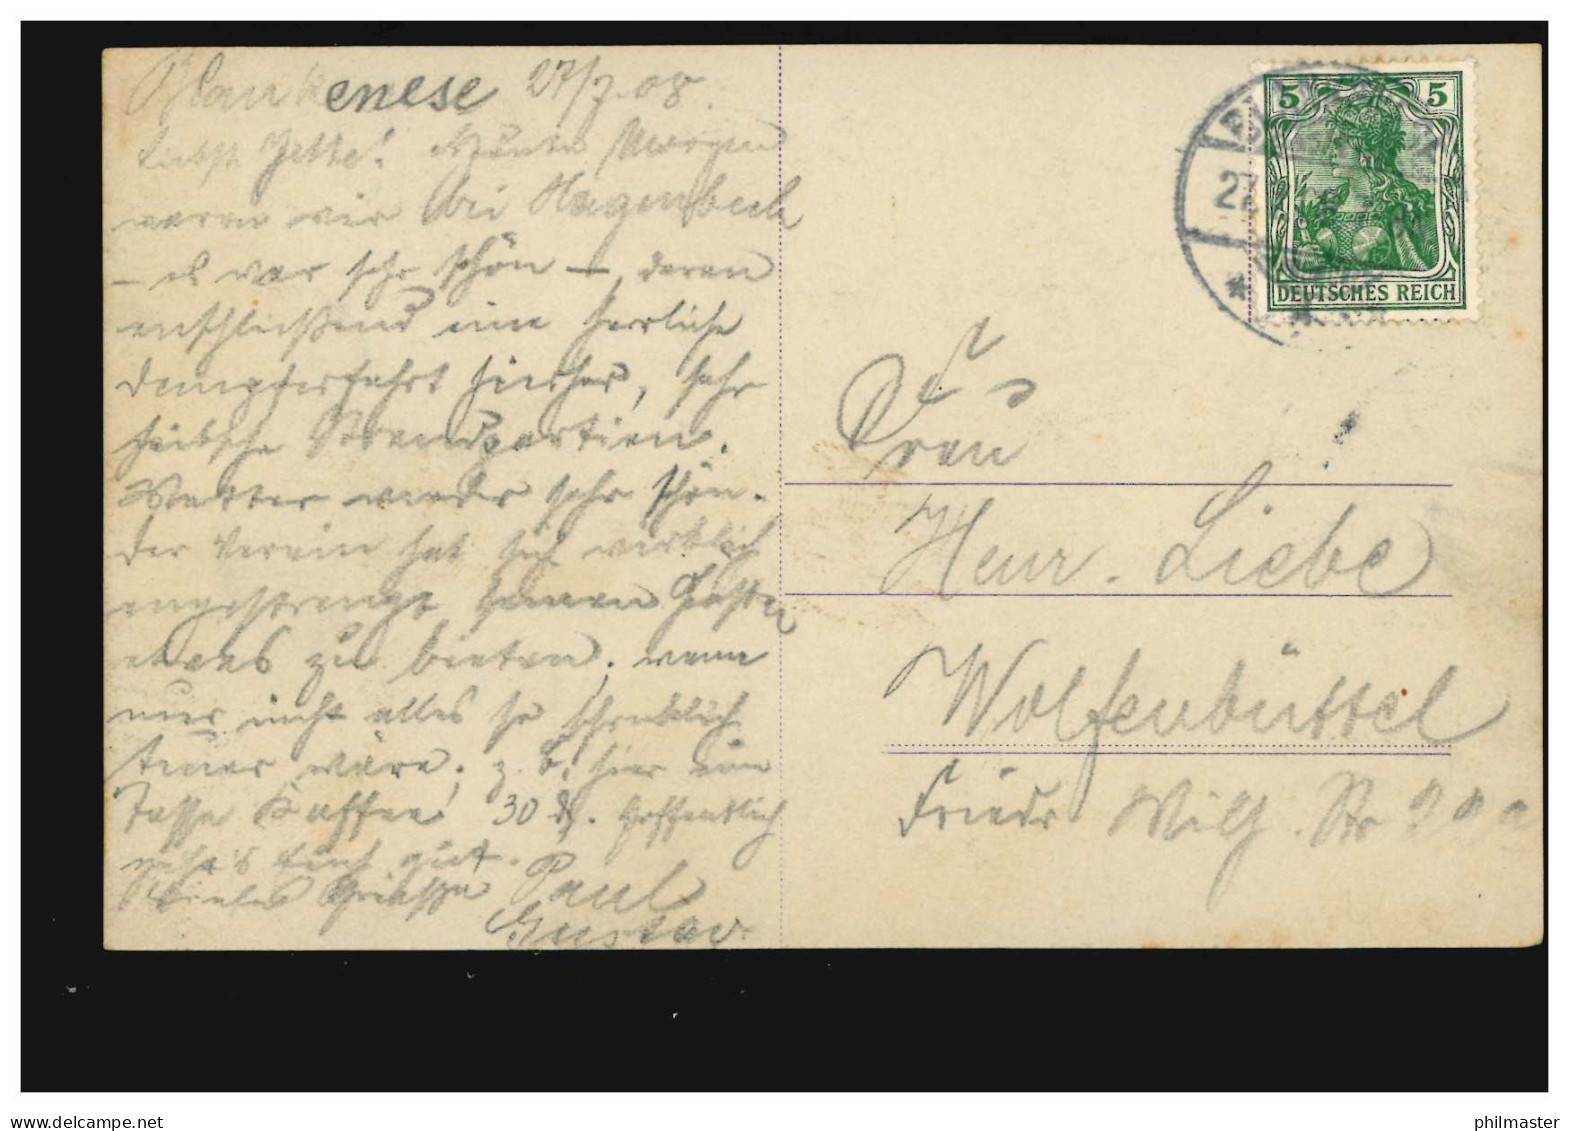 Blankenese 27/7.08.
Liebste Jette! Heute Morgen
waren wir bei Hagenbeck
– es war sehr schön –, daran
anschließend eine herrliche
Dampferfahrt hierher, sehr
hübsche Strandpartien.
Wetter wieder sehr schön.
Der Verein hat sich wirklich
angestrengt seinen Gästen
etwas zu bieten, wenn
nur nicht alles so schrecklich
teuer wäre, z. b. hier eine
Tasse Kaffee 30 ₰. Hoffentlich
geht's Euch gut.
Viele Grüsse Paul
Gustav.
5 5
DEUTSCHES REICH
27
Frau
Heinr. Liebe
Wolfenbüttel
Friedr. Wilh. Str
www.delcampe.net
philmaster